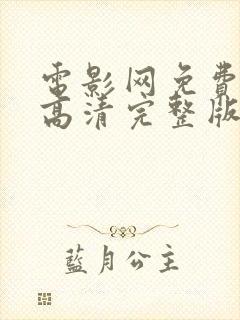 電影网免費
高清完整版
藍月公主